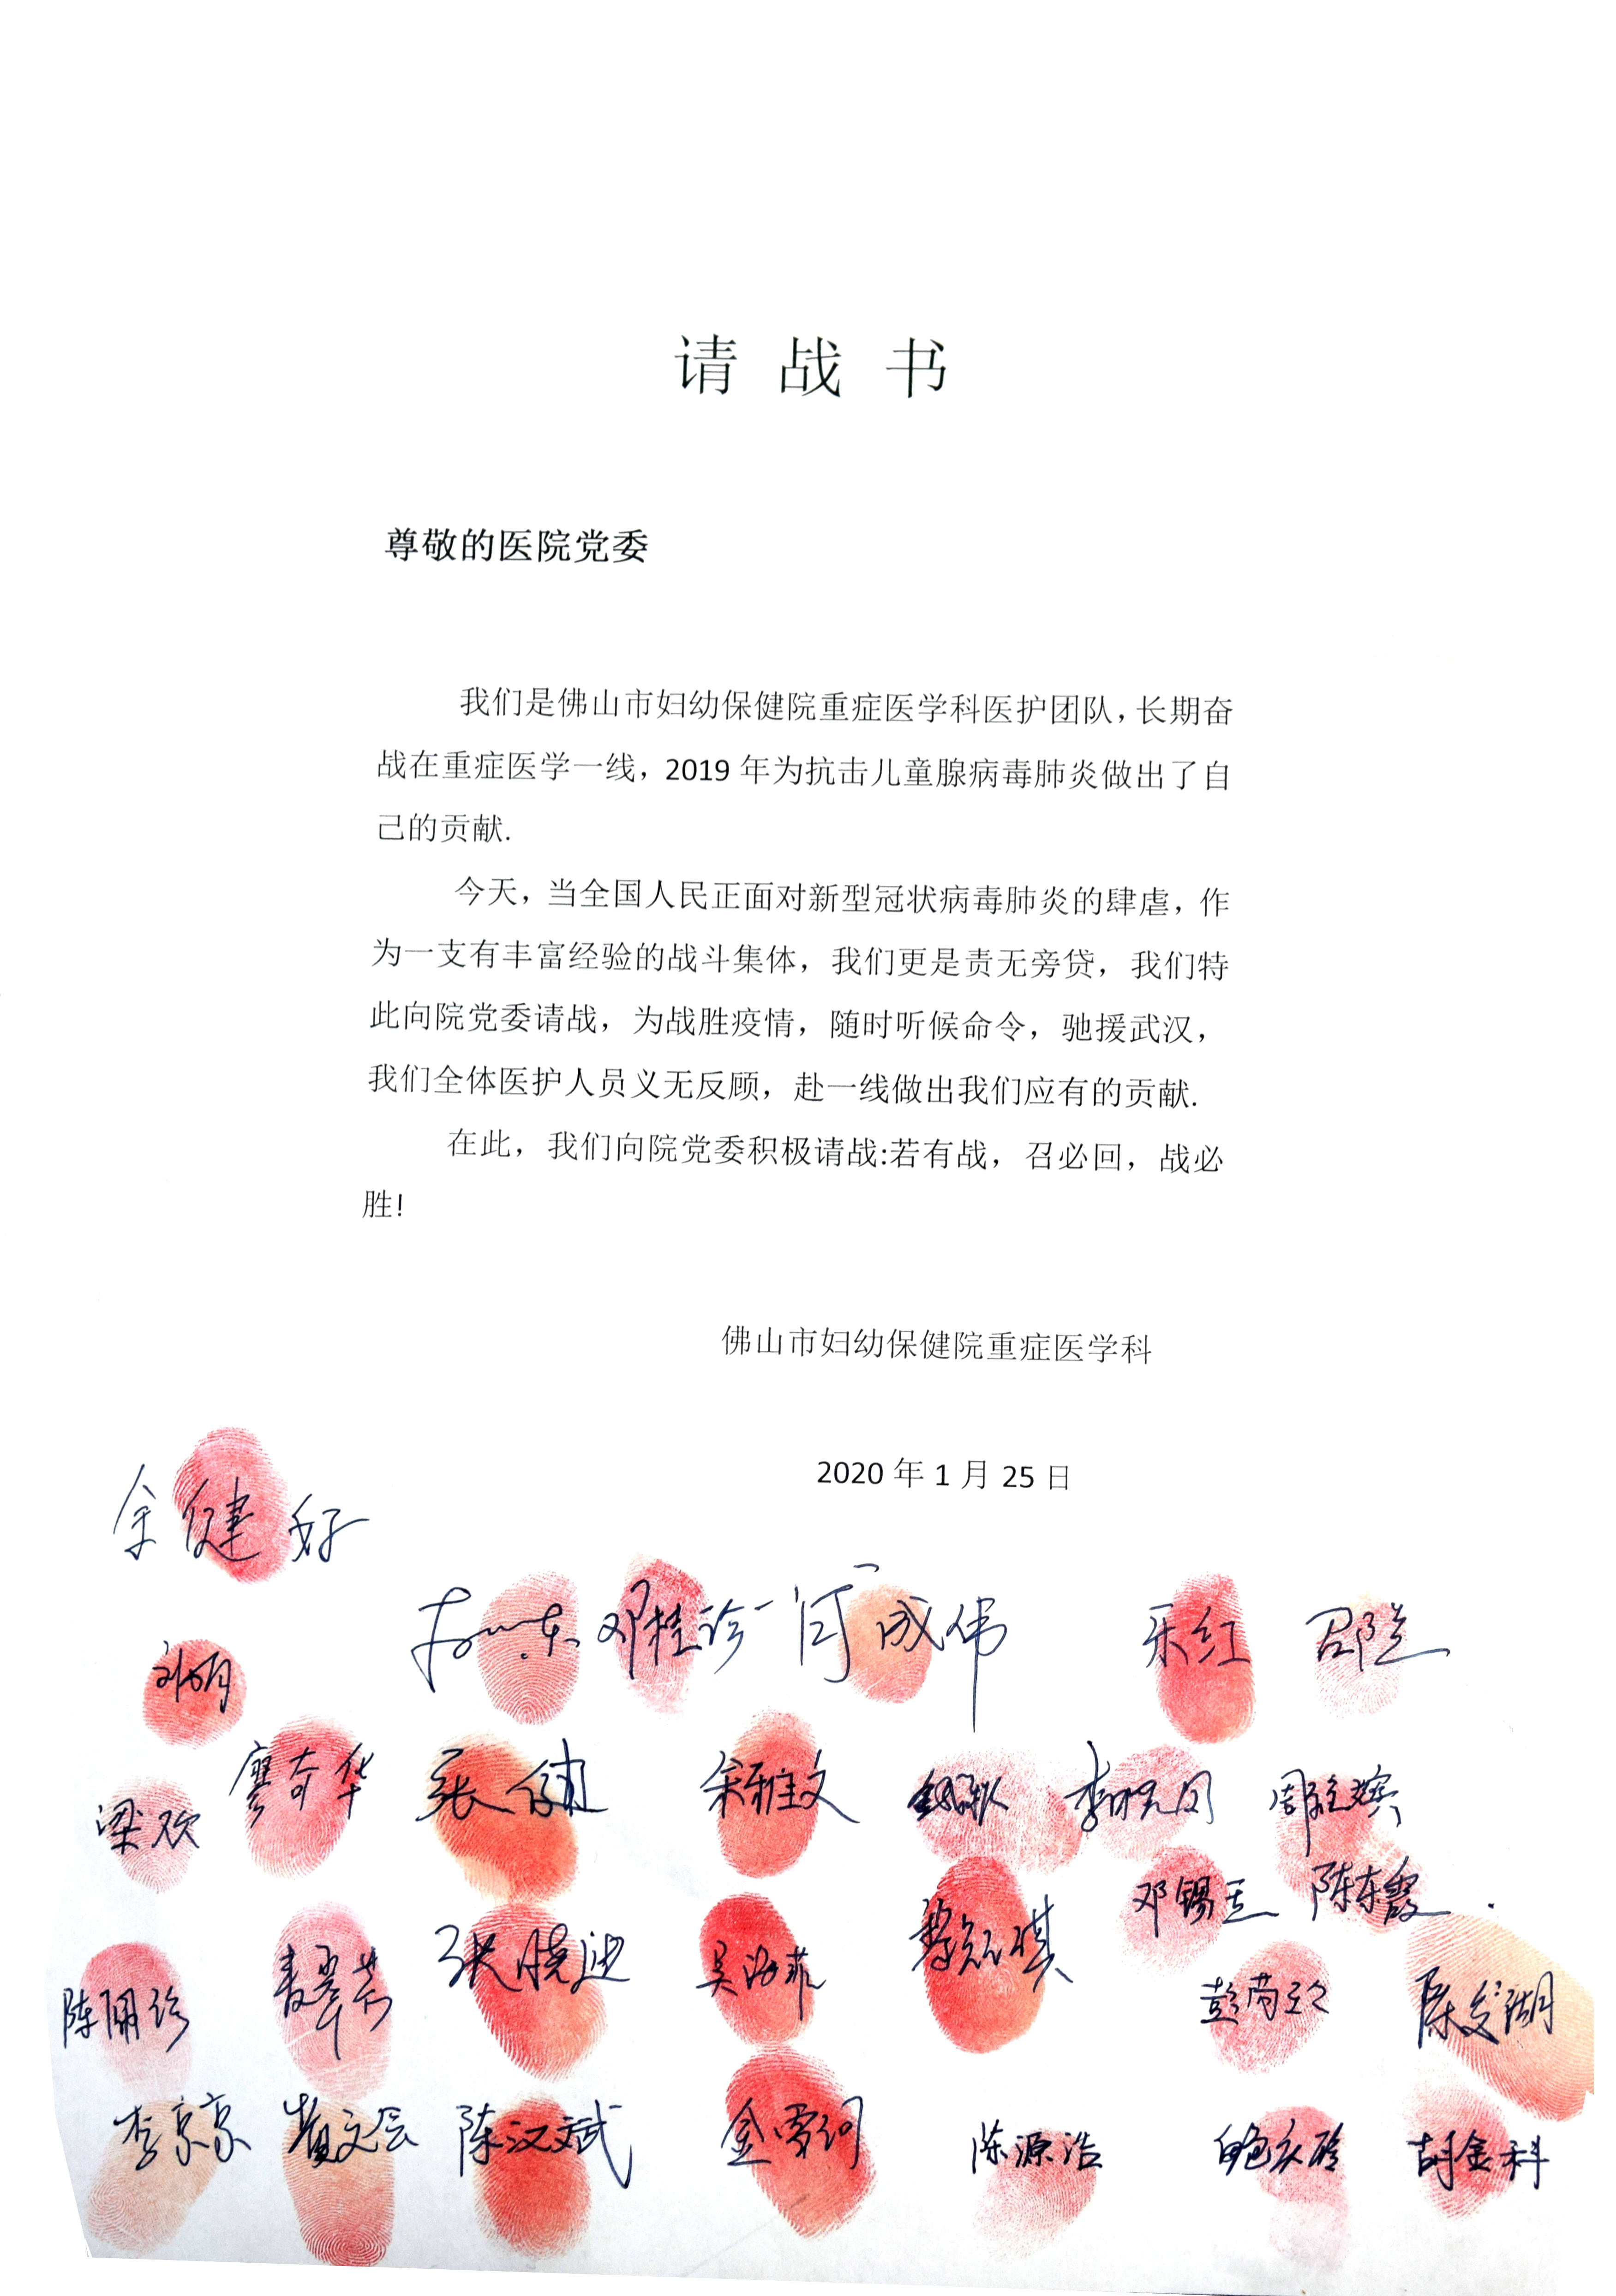 请战书
尊敬的医院党委
我们是佛山市妇幼保健院重症医学科医护团队，长期奋
战在重症医学一线，2019 年为抗击儿童腺病毒肺炎做出了自
己的贡献.
今天，当全国人民正面对新型冠状病毒肺炎的肆虐，作
为一支有丰富经验的战斗集体，我们更是责无旁贷，我们特
此向院党委请战，为战胜疫情，随时听候命令，驰援武汉，
我们全体医护人员义无反顾，赴一线做出我们应有的贡献.
在此，我们向院党委积极请战:若有战，召必回，战必
胜!
佛山市妇幼保健院重症医学科
2020 年 1 月 25 日
余健好
邓桂诊 闫成伟 乐红
梁欢 廖奇华 张健 余雅文
陈东霞
张晓迪 吴海菲
陈汉斌 陈源浩 鲍衣玲 胡金科